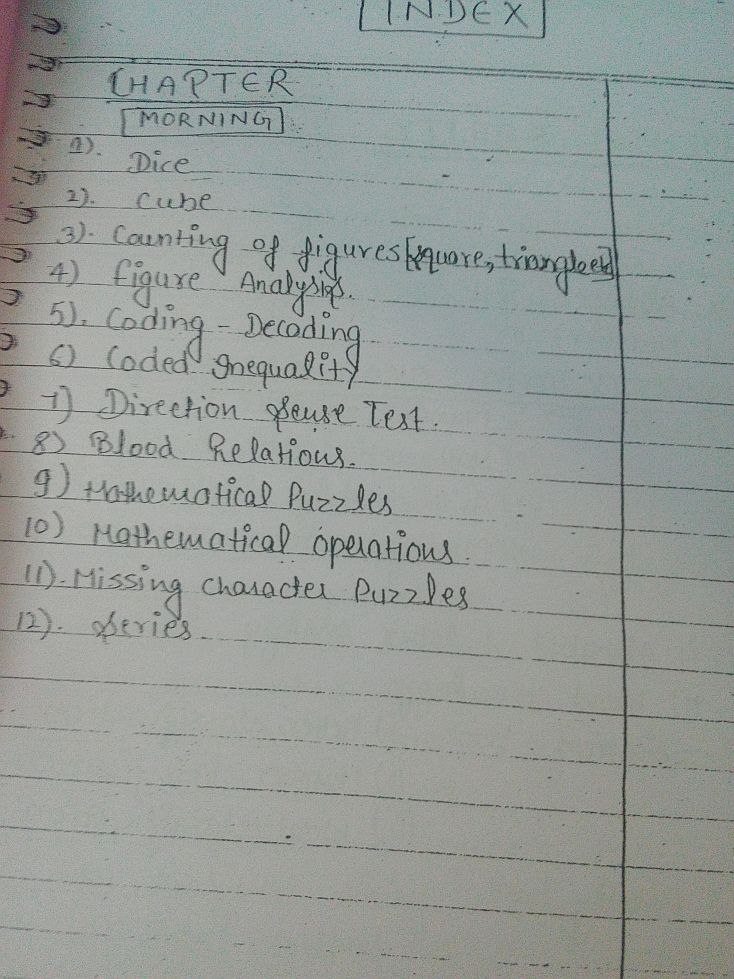 INDEX
CHAPTER
MORNING
1). Dice
2). Cube
3). Counting of figures [square, triangle etc]
4) figure Analysis.
5). Coding - Decoding
6) Coded Inequality
7) Direction Sense Test.
8) Blood Relations.
9) Mathematical Puzzles
10) Mathematical operations.
11). Missing character Puzzles
12). Series